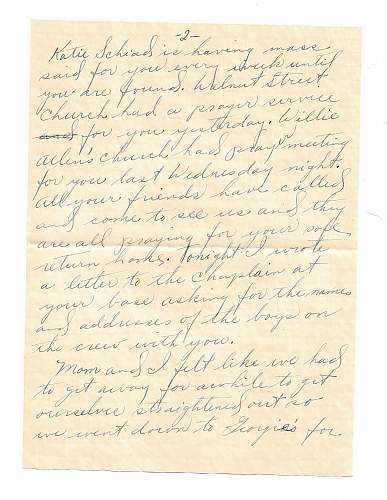 -2-
Katie Schiads is having mass
said for you every week until
you are found. Walnut Street
Church had a prayer service
and for you yesterday. Willie
Allen's church had pray'r meeting
for you last Wednesday night.
All your friends have called
and come to see us and they
are all praying for your safe
return home. Tonight I wrote
a letter to the Chaplain at
your base asking for the names
and addresses of the boys on
the crew with you.
Mom and I felt like we had
to get away for awhile to get
ourselves straightened out so
we went down to Georgie's for